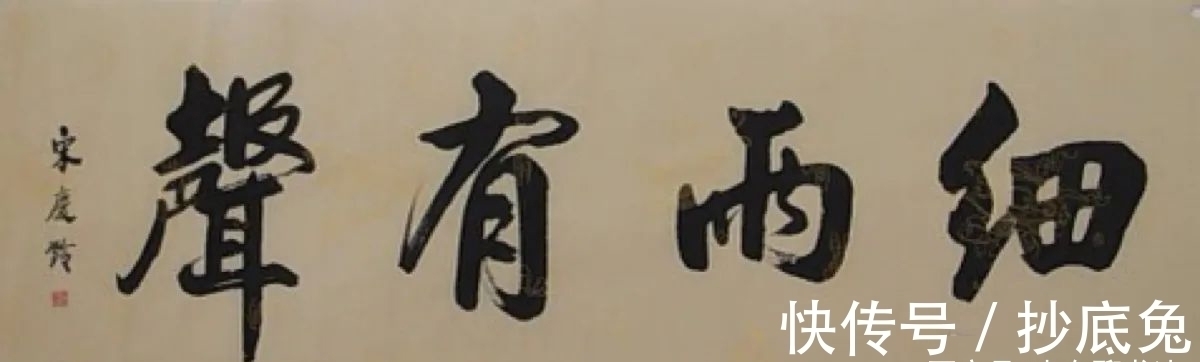 细雨有聲
宋慶齡
快传号 / 抄底兔